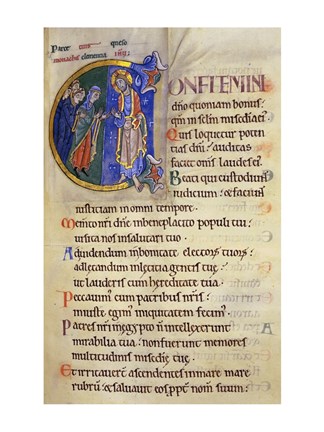 Parce tuis queso
monachis clementia iħu
CONFITEMINI
dño quoniam bonus:
qm̄ in sclm̄ misc̄dia ei᾽
Quis loquetur poten
tias dñi: auditas
faciet om̄s laudes ei᾽.
Beati qui custodiunt
iudicium: & faciunt
iusticiam in omni tempore.
Memento nr̄i dñe inbeneplacito populi tui:
uisita nos insalutari tuo.
Aduidendum inbonitate electorꝝ tuorꝝ:
adletandum inleticia gentis tuę:
ut lauderis cum hereditate tua.
Peccauim᾽ cum patribus nr̄is:
iniuste egim᾽ iniquitatem fecim᾽.
Patres nr̄i inęgypto ñ intellexerunt
mirabilia tua: nonfuerunt memores
multitudinis misc̄die tuę.
Et irritauer̄t ascendentes in mare mare
rubrū & saluauit eos ꝓpt̄ nom̄ suum: